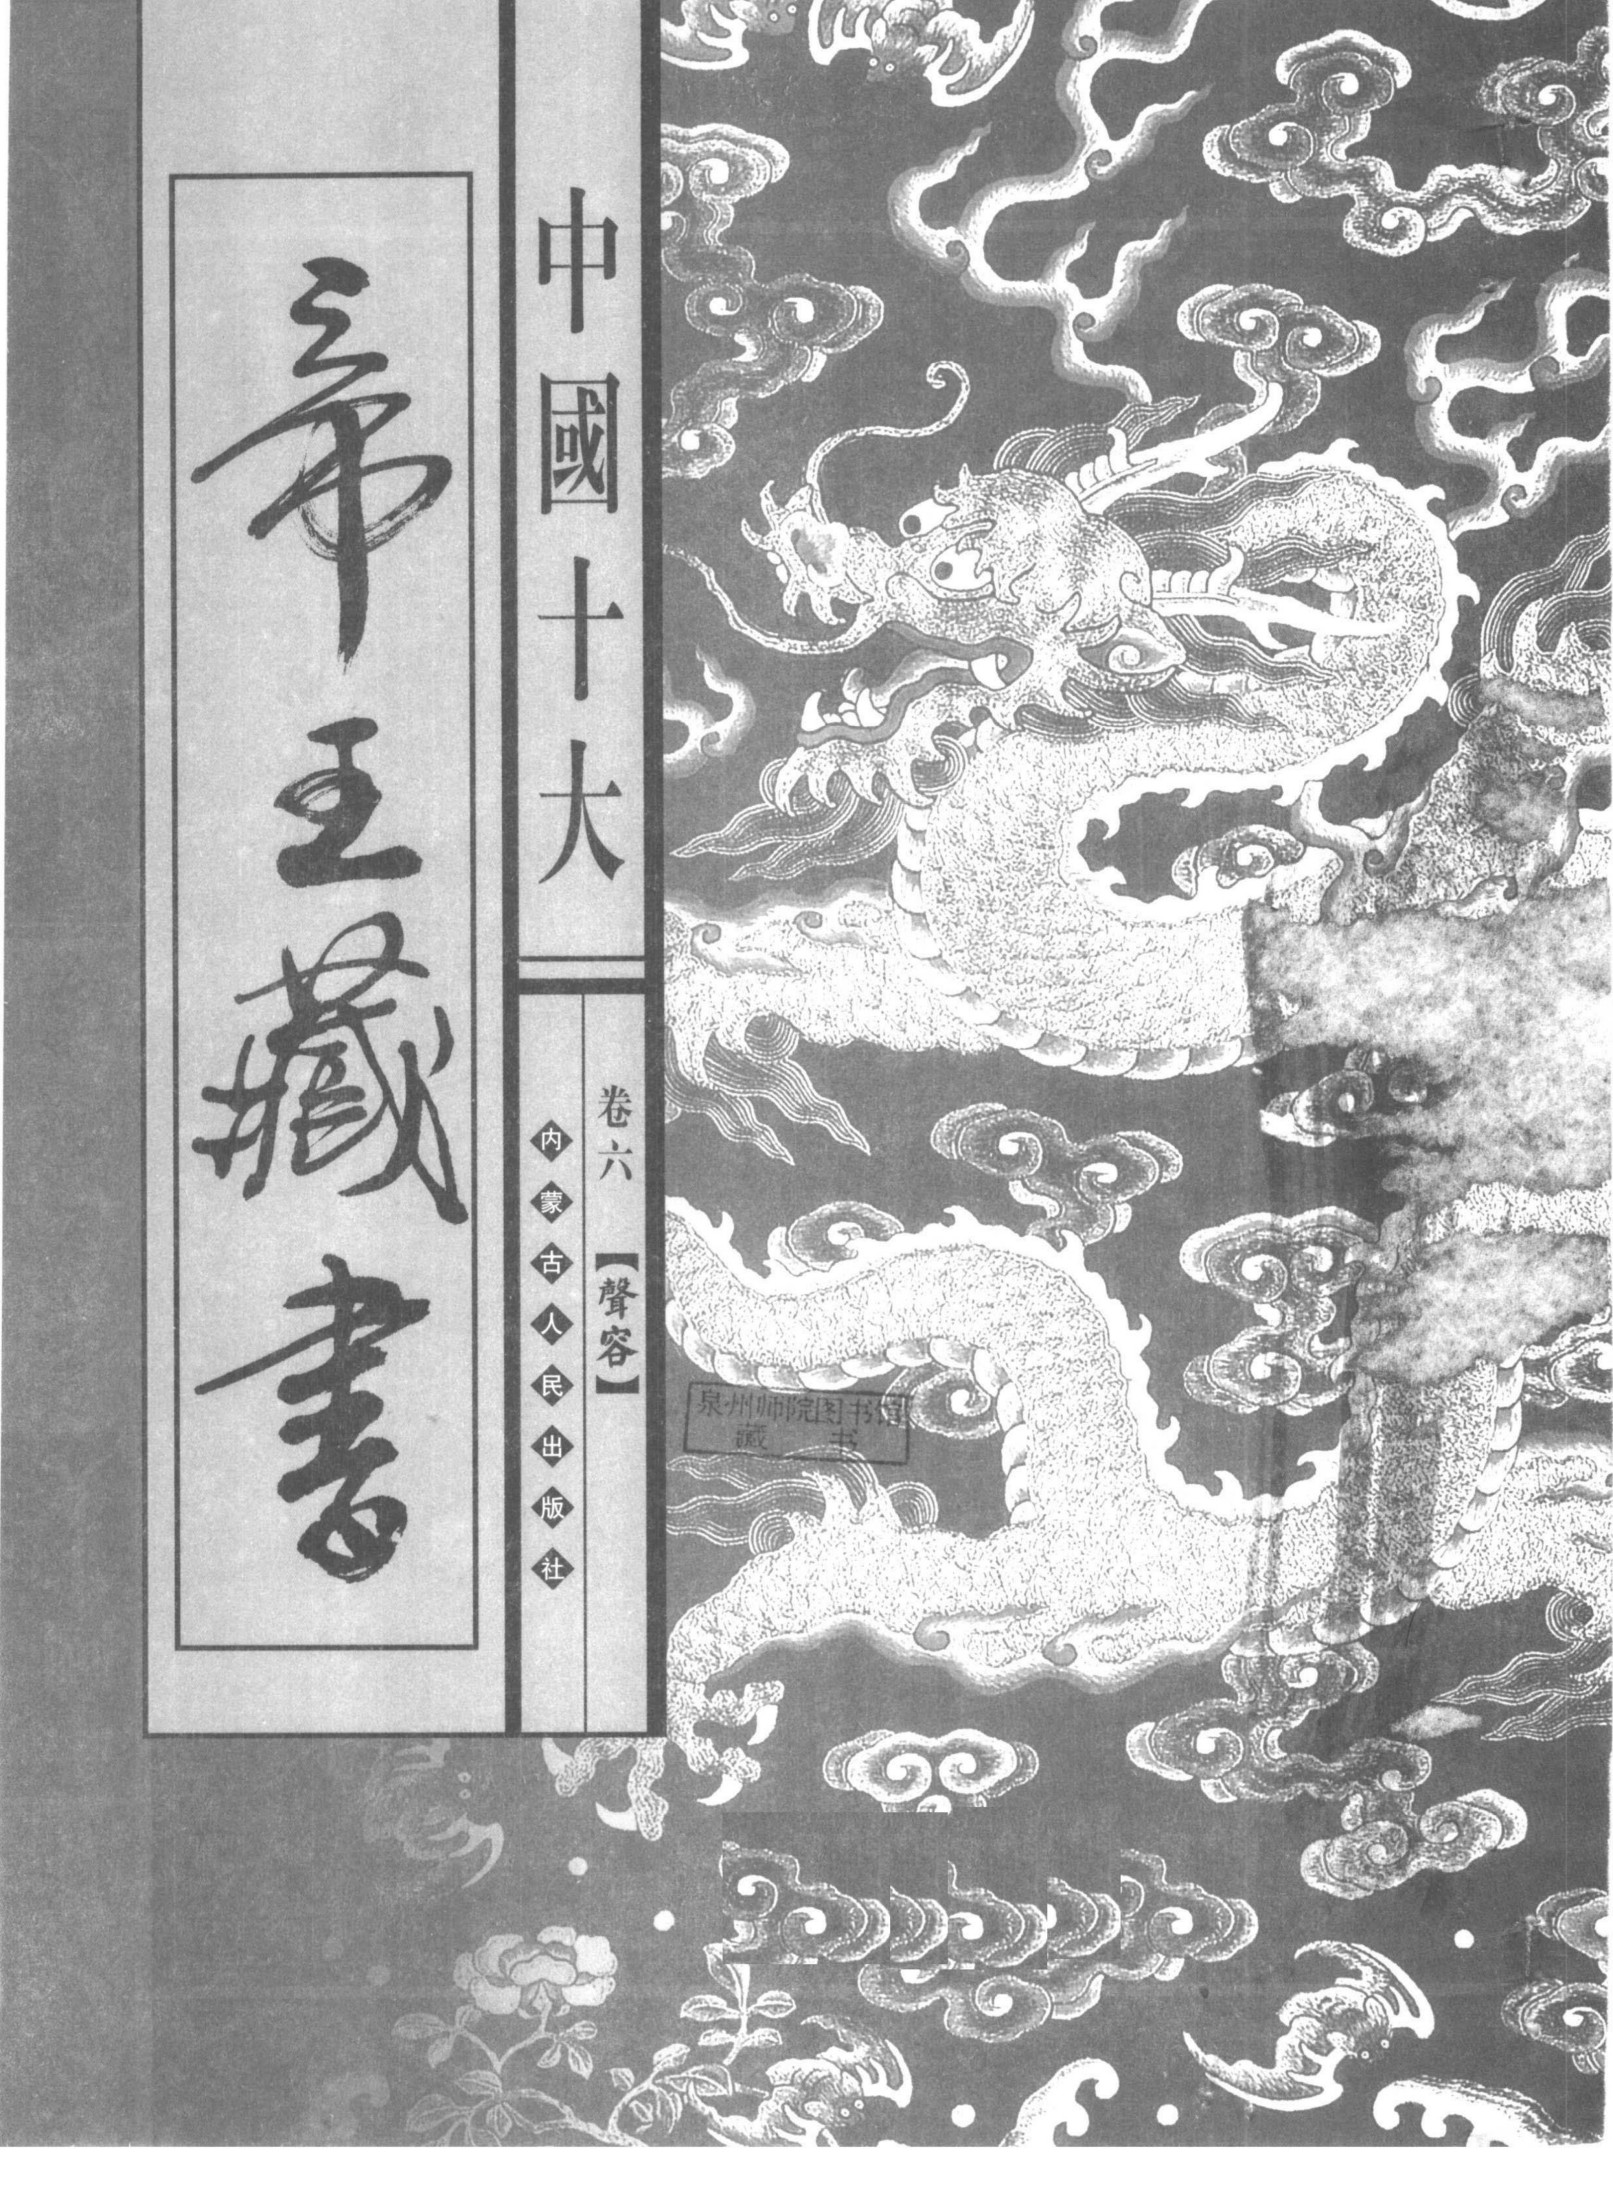 中國十大
帝王藏書
卷六【聲容】
内蒙古人民出版社
泉州师院图书馆
藏 书